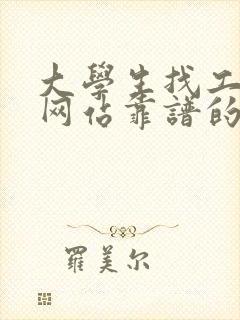 大學生找工
网估靠譜的
羅美尔